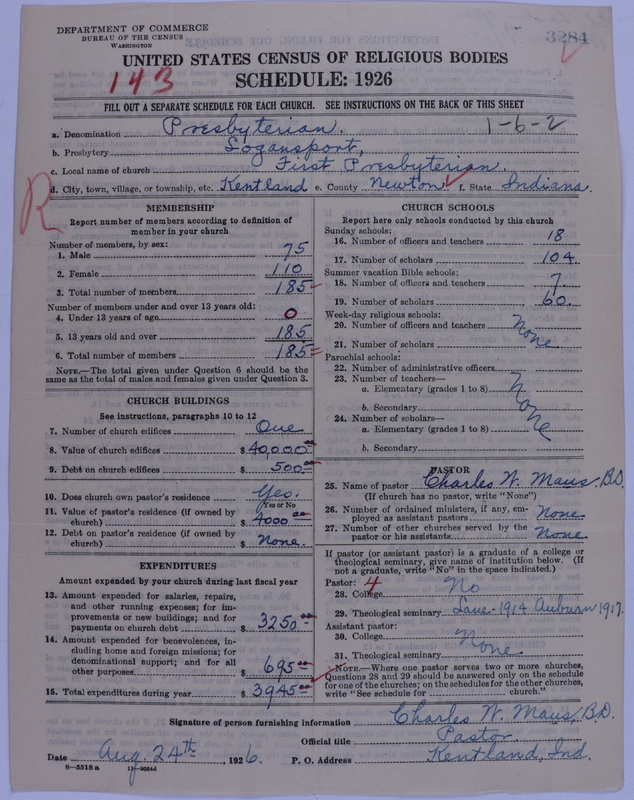 DEPARTMENT OF COMMERCE
BUREAU OF THE CENSUS
WASHINGTON
3284
UNITED STATES CENSUS OF RELIGIOUS BODIES
143
SCHEDULE: 1926
FILL OUT A SEPARATE SCHEDULE FOR EACH CHURCH. SEE INSTRUCTIONS ON THE BACK OF THIS SHEET
a. Denomination Presbyterian. 1-6-2
b. Presbytery Logansport,
c. Local name of church First Presbyterian.
d. City, town, village, or township, etc. Kentland e. County Newton f. State Indiana.
R
MEMBERSHIP
Report number of members according to definition of
member in your church
Number of members, by sex:
1. Male 75
2. Female 110
3. Total number of members 185
Number of members under and over 13 years old:
4. Under 13 years of age 0
5. 13 years old and over 185
6. Total number of members 185
NOTE.—The total given under Question 6 should be
same as the total of males and females given under Question 3.
CHURCH BUILDINGS
See instructions, paragraphs 10 to 12
7. Number of church edifices One
8. Value of church edifices $ 40,000.00
9. Debt on church edifices $ 500.00
10. Does church own pastor's residence Yes.
(Yes or No)
11. Value of pastor's residence (if owned by
church) $ 4000.00
12. Debt on pastor's residence (if owned by
church) $ None.
EXPENDITURES
Amount expended by your church during last fiscal year
13. Amount expended for salaries, repairs,
and other running expenses; for im-
provements or new buildings; and for
payments on church debt $ 3250.00
14. Amount expended for benevolences, in-
cluding home and foreign missions; for
denominational support; and for all
other purposes $ 695.00
15. Total expenditures during year $ 3945.00
CHURCH SCHOOLS
Report here only schools conducted by this church
Sunday schools:
16. Number of officers and teachers 18
17. Number of scholars 104
Summer vacation Bible schools:
18. Number of officers and teachers 7.
19. Number of scholars 60.
Week-day religious schools:
20. Number of officers and teachers None
21. Number of scholars
Parochial schools:
22. Number of administrative officers
23. Number of teachers—
a. Elementary (grades 1 to 8) None
b. Secondary
24. Number of scholars—
a. Elementary (grades 1 to 8)
b. Secondary
PASTOR
25. Name of pastor Charles W. Maus, B.D.
(If church has no pastor, write "None")
26. Number of ordained ministers, if any, em-
ployed as assistant pastors None
27. Number of other churches served by the
pastor or his assistants None
If pastor (or assistant pastor) is a graduate of a college or
theological seminary, give name of institution below. (If
not a graduate, write "No" in the space indicated.)
Pastor: 4
28. College No
29. Theological seminary Lane-1914 Auburn 1917.
Assistant pastor:
30. College
31. Theological seminary None
NOTE.—Where one pastor serves two or more churches,
Questions 28 and 29 should be answered only on the schedule
for one of the churches; on the schedules for the other churches,
write "See schedule for church."
Signature of person furnishing information Charles W. Maus, B.D.
Official title Pastor.
Date Aug. 24th, 1926. P. O. Address Kentland, Ind.
8—5518a